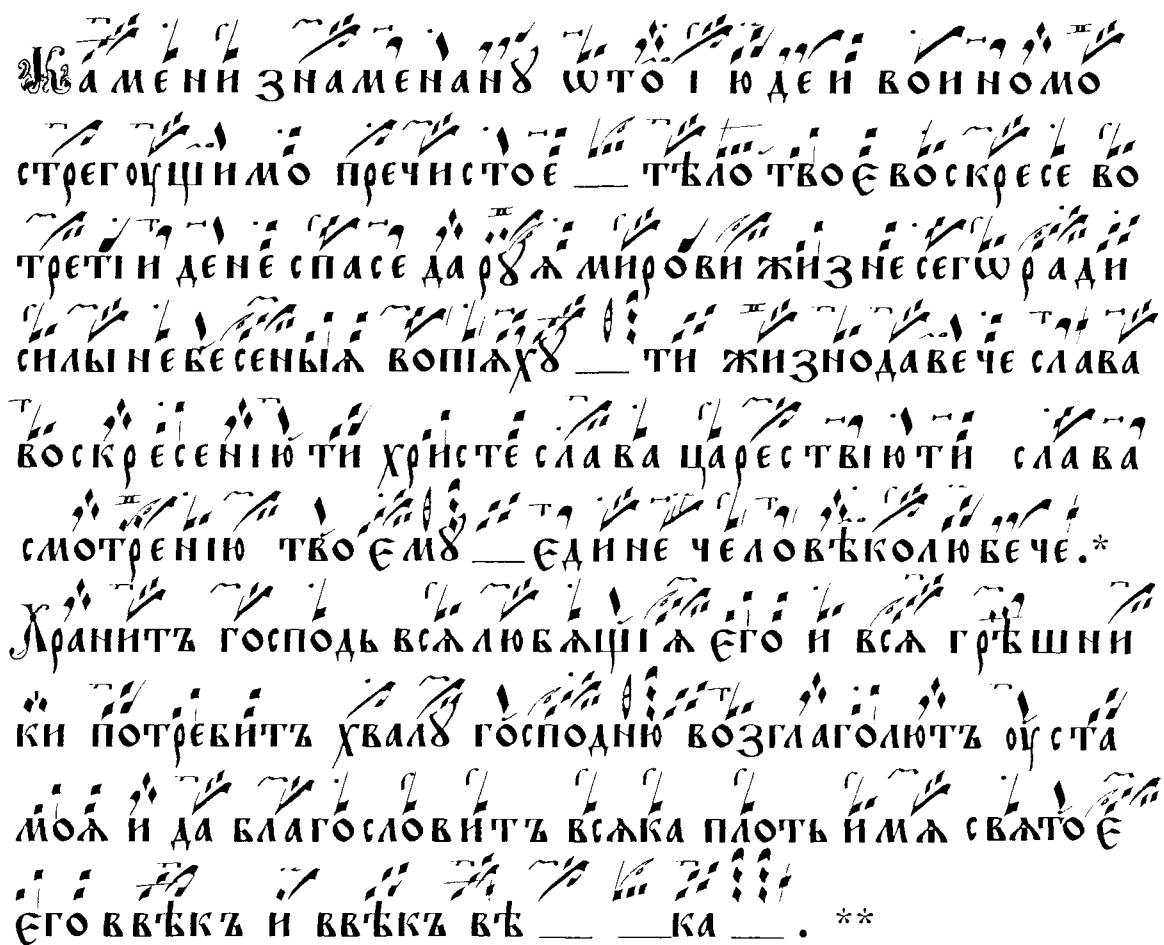 Камени знаменанꙋ ѿто̑ і юдеи воиномо
стрегоущимо пречистое __ тѣло твоє воскресе во
третіи дене спасе дарꙋя мирови жизне сегѡ ради
силы небесеныѧ вопіѧхꙋ __ ти жизнодавече слава
воскресению ти христе слава царествію ти слава
смотренію твоємꙋ __ єдине человѣколюбече.*
Хранитъ господь всѧ любѧщіѧ єго и всѧ грѣшни
ки потребитъ хвалꙋ господню возглаголютъ оуста
моѧ и да благословитъ всѧка плоть имѧ свѧтоє
єго ввѣкъ и ввѣкъ вѣ __ __ка __ . **